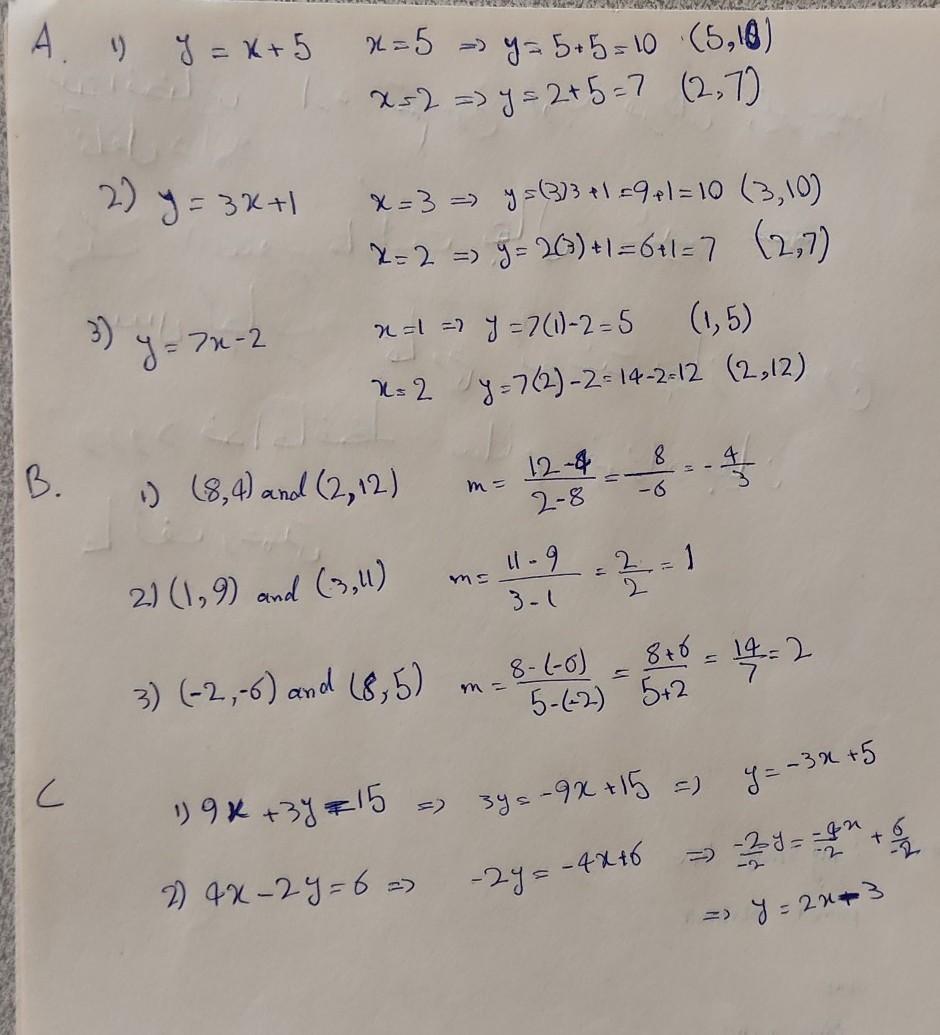 A. 1) y = x + 5 x = 5 => y = 5 + 5 = 10 (5,10)
x = 2 => y = 2 + 5 = 7 (2,7)
2) y = 3x + 1 x = 3 => y = (3)3 + 1 = 9 + 1 = 10 (3,10)
x = 2 => y = 2(3) + 1 = 6 + 1 = 7 (2,7)
3) y = 7x - 2 x = 1 => y = 7(1) - 2 = 5 (1,5)
x = 2 y = 7(2) - 2 = 14 - 2 = 12 (2,12)
B. 1) (8,4) and (2,12) m = (12 - 4)/(2 - 8) = 8/-6 = -4/3
2) (1,9) and (3,11) m = (11 - 9)/(3 - 1) = 2/2 = 1
3) (-2,-6) and (8,5) m = (8 - (-6))/(5 - (-2)) = (8 + 6)/(5 + 2) = 14/7 = 2
C 1) 9x + 3y = 15 => 3y = -9x + 15 => y = -3x + 5
2) 4x - 2y = 6 => -2y = -4x + 6 => -2/-2 y = -4x/-2 + 6/-2
=> y = 2x - 3